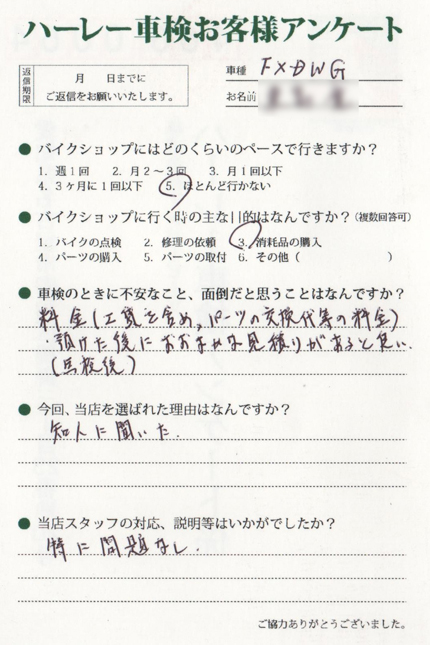 ハーレー車検お客様アンケート
返信期限
月　日までに
ご返信をお願いいたします。
車種 FXDWG
お名前
● バイクショップにはどのくらいのペースで行きますか？
1. 週1回　2. 月2～3回　3. 月1回以下
4. 3ヶ月に1回以下　5. ほとんど行かない
● バイクショップに行く時の主な目的はなんですか？（複数回答可）
1. バイクの点検　2. 修理の依頼　3. 消耗品の購入
4. パーツの購入　5. パーツの取付　6. その他（　　　）
● 車検のときに不安なこと、面倒だと思うことはなんですか？
料金（工賃を含め、パーツの交換代等の料金）
・預けた後におおまかな見積りがあると良い、
（点検後）
● 今回、当店を選ばれた理由はなんですか？
知人に聞いた.
● 当店スタッフの対応、説明等はいかがでしたか？
特に問題なし.
ご協力ありがとうございました。